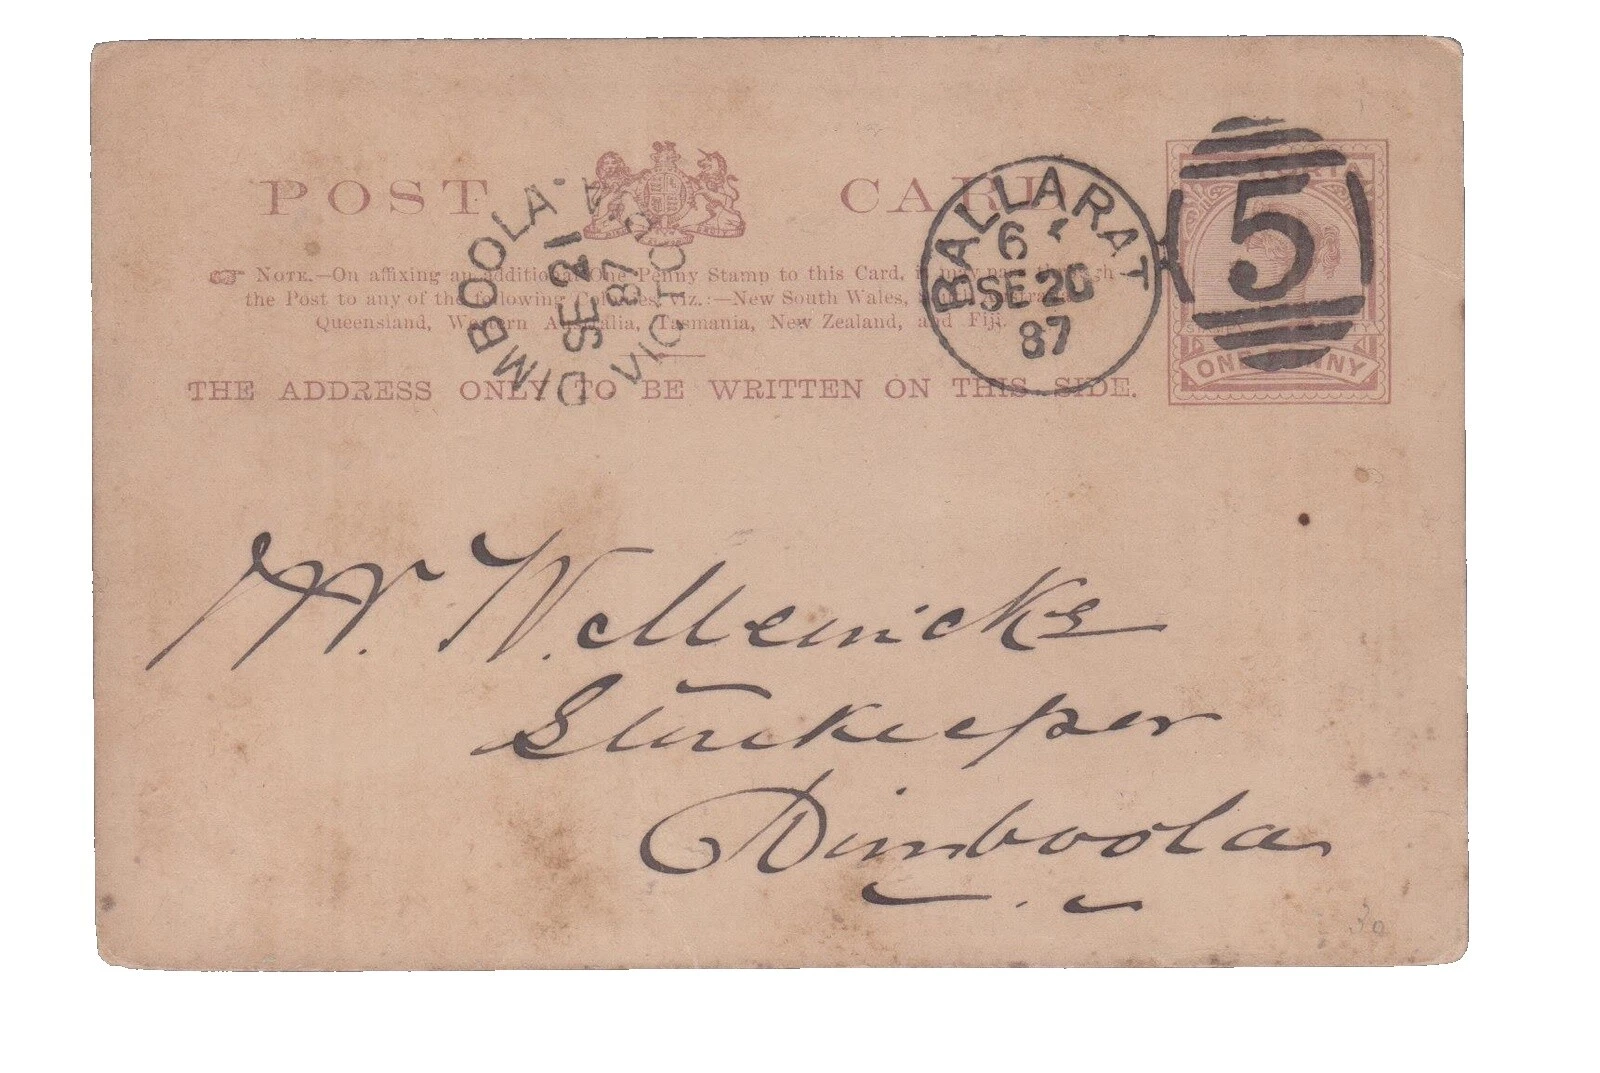 POST CARD
NOTE.—On affixing an additional One Penny Stamp to this Card, it may pass through
the Post to any of the following Colonies, viz.:—New South Wales, South Australia,
Queensland, Western Australia, Tasmania, New Zealand, and Fiji.
THE ADDRESS ONLY TO BE WRITTEN ON THIS SIDE.
DIMBOOLA
SE 21
87
VICTORIA
BALLARAT
6
SE 20
87
5
ONE PENNY
Mr W.
Storekeeper
Dimboola
30